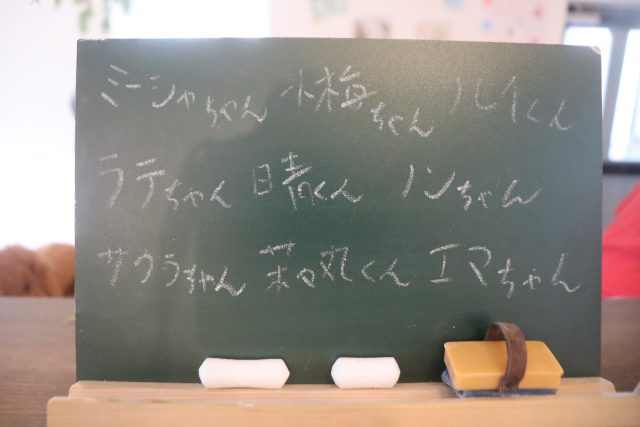 ミーシャちゃん 小梅ちゃん ルイくん
ラテちゃん 日青くん ノンちゃん
サクラちゃん 茶丸くん エマちゃん